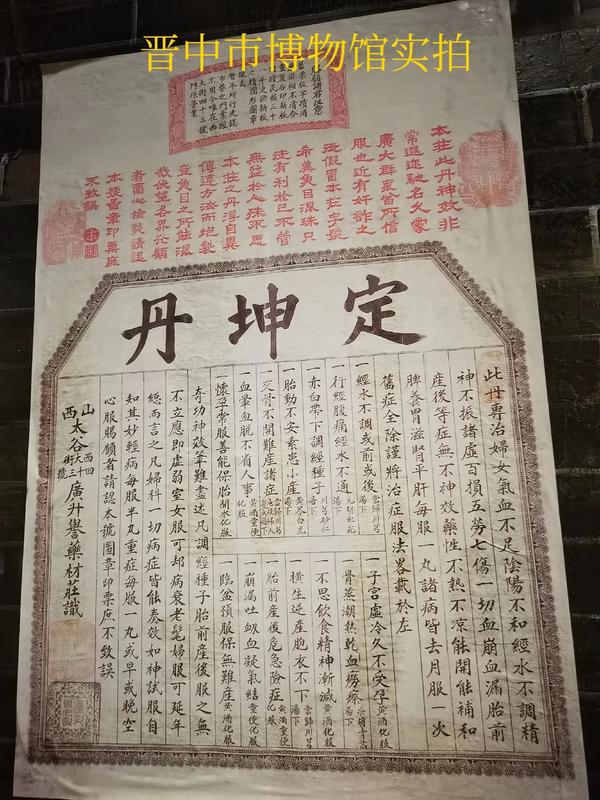 晋中市博物馆实拍
本莊此丹神效非
常遐迩馳名久蒙
廣大群衆首所信
服也近有奸詐之
徒假冒本莊字號
希冀魚目混珠只
注有利於己不管
無益於人殊不思
本莊之丹得自異
傳遵方法而炮製
豈魚目之所能混
哉伏望各界光顧
者留心檢裝請認
本號圖章印票庶
不致誤
定坤丹
此丹專治婦女氣血不足陰陽不和經水不調精
神不振諸虛百損五勞七傷一切血崩血漏胎前
產後等症無不神效藥性不熱不凉能開能補和
脾養胃滋腎平肝每服 丸諸病皆去月服一次
舊症全除謹將治症服法畧載於左
一經水不調或前或後
一行經腹痛經水不通
赤白帶下調經種子
一胎動不安素患小產
一交骨不開難產諸症
一血暈血脱不省人事
一懷孕常服善能保胎開水化服
一子宫虛冷久不受孕黄酒化服
骨蒸潮熱乾血癆瘵
一不思飲食精神漸減黄酒化服
橫生逆產胞衣不下
一胎前產後危急險症
一崩漏吐衂血凝氣結童便化服
一臨盆預服保無難產黄酒化服
奇功神效筆難盡述凡調經種子胎前產後服之無
不立應即虛弱室女服可却病衰老髦婦服可延年
總而言之凡婦科一切病症皆能奏效如神試服自
知其妙經病每服半丸重症每服 丸或早或晚空
心服賜顧者請認本號圖章印票庶不致誤
山西太谷西大街四十三號廣升譽藥材莊識